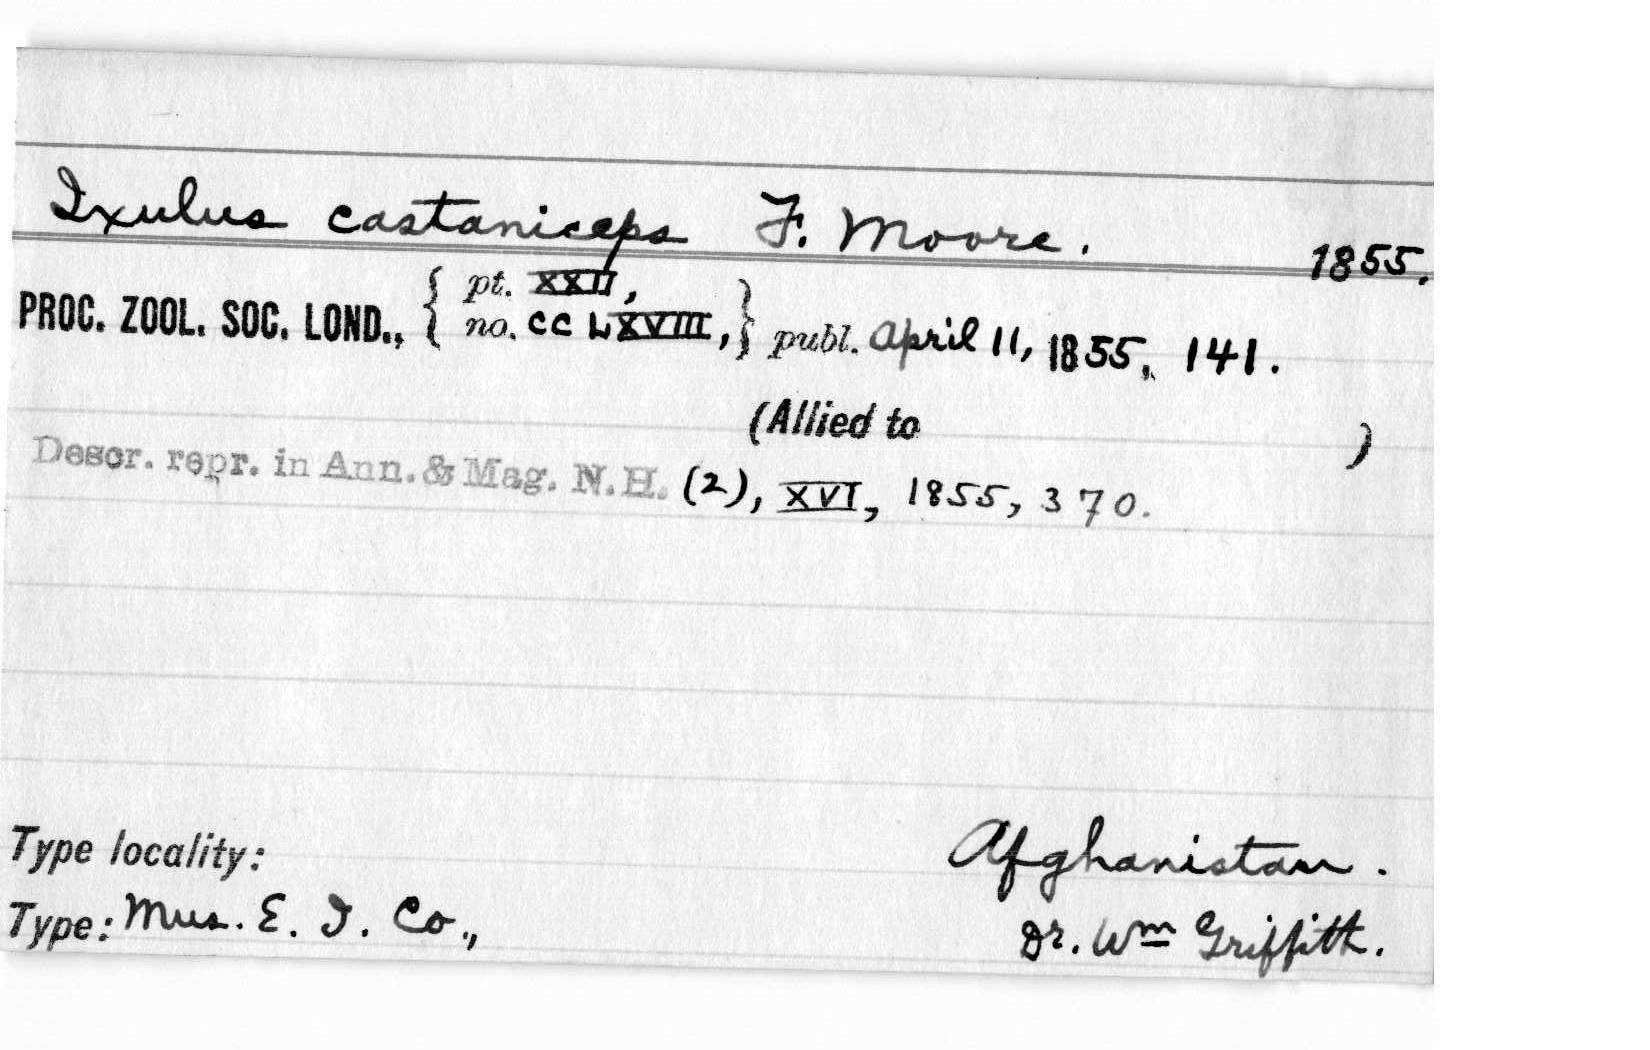 Ixulus castaniceps F. Moore. 1855.
PROC. ZOOL. SOC. LOND., { pt. XXII, no. CCLXVIII, } publ. April 11, 1855, 141.
(Allied to )
Descr. repr. in Ann. & Mag. N.H. (2), XVI, 1855, 370.
Type locality: Afghanistan.
Type: Mus. E. I. Co., Dr. Wm Griffith.